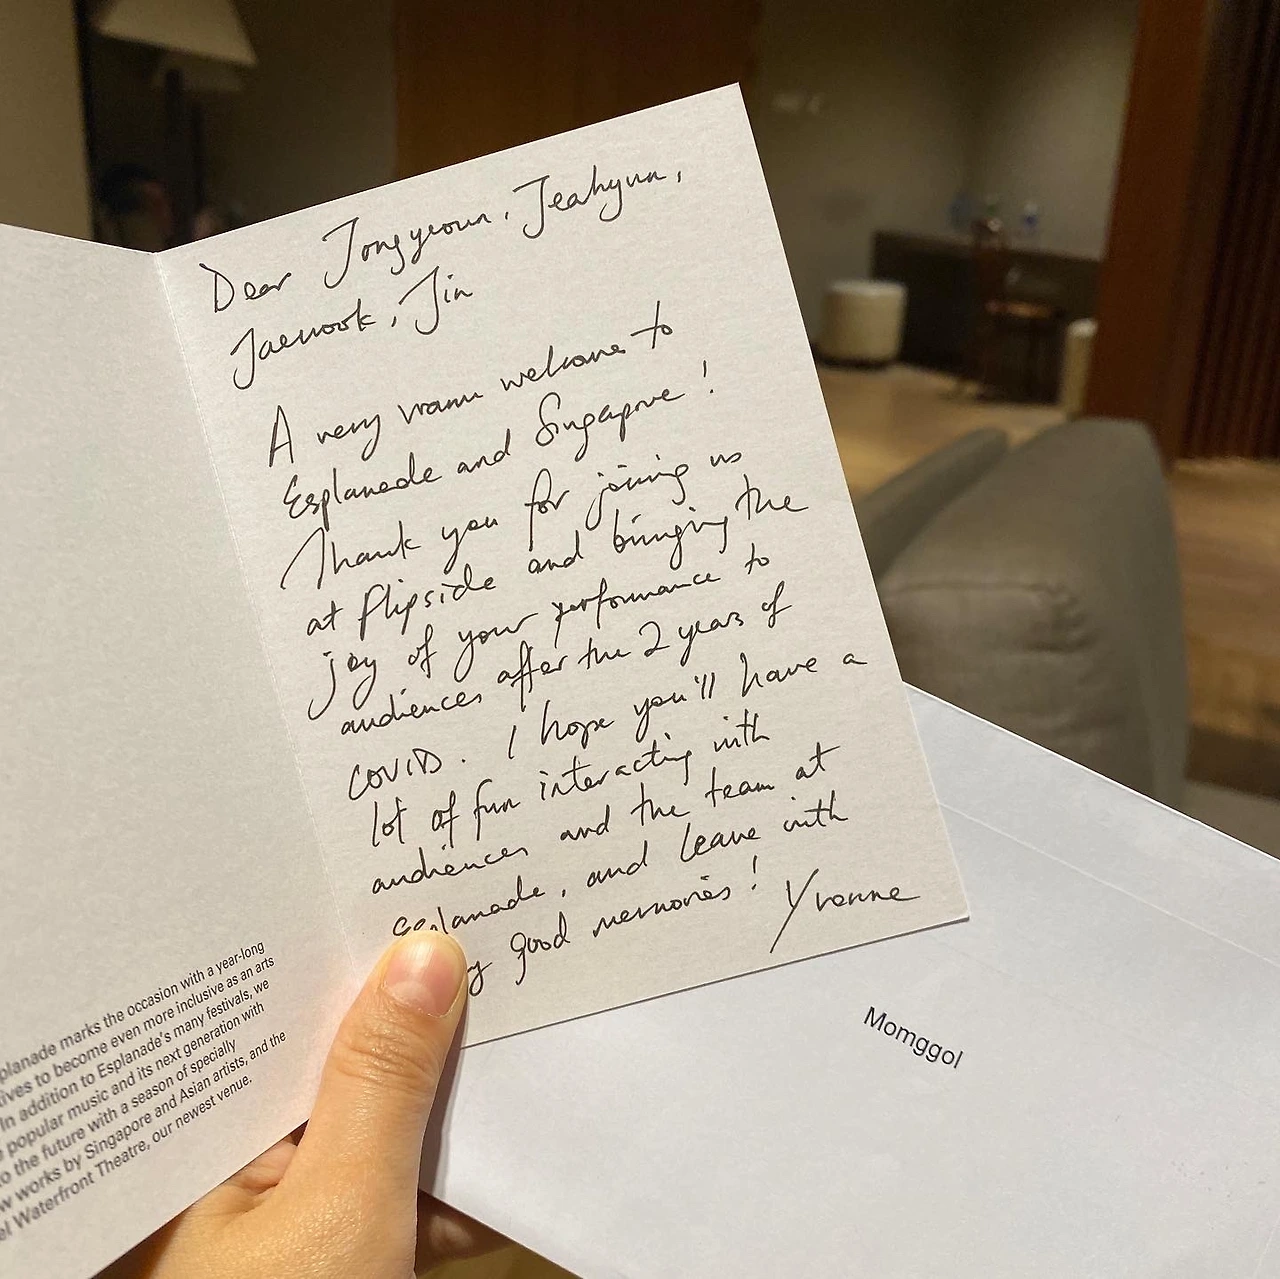 Dear Jongyeoun, Jeahyun,
Jaewook, Jin
A very warm welcome to
Esplanade and Singapore!
Thank you for joining us
at flipside and bringing the
joy of your performance to
audiences after the 2 years of
COVID. I hope you'll have a
lot of fun interacting with
audiences and the team at
Esplanade, and leave with
good memories!
Yvonne
planade marks the occasion with a year-long
tives to become even more inclusive as an arts
In addition to Esplanade's many festivals, we
popular music and its next generation with
to the future with a season of specially
w works by Singapore and Asian artists, and the
el Waterfront Theatre, our newest venue.
Momggol